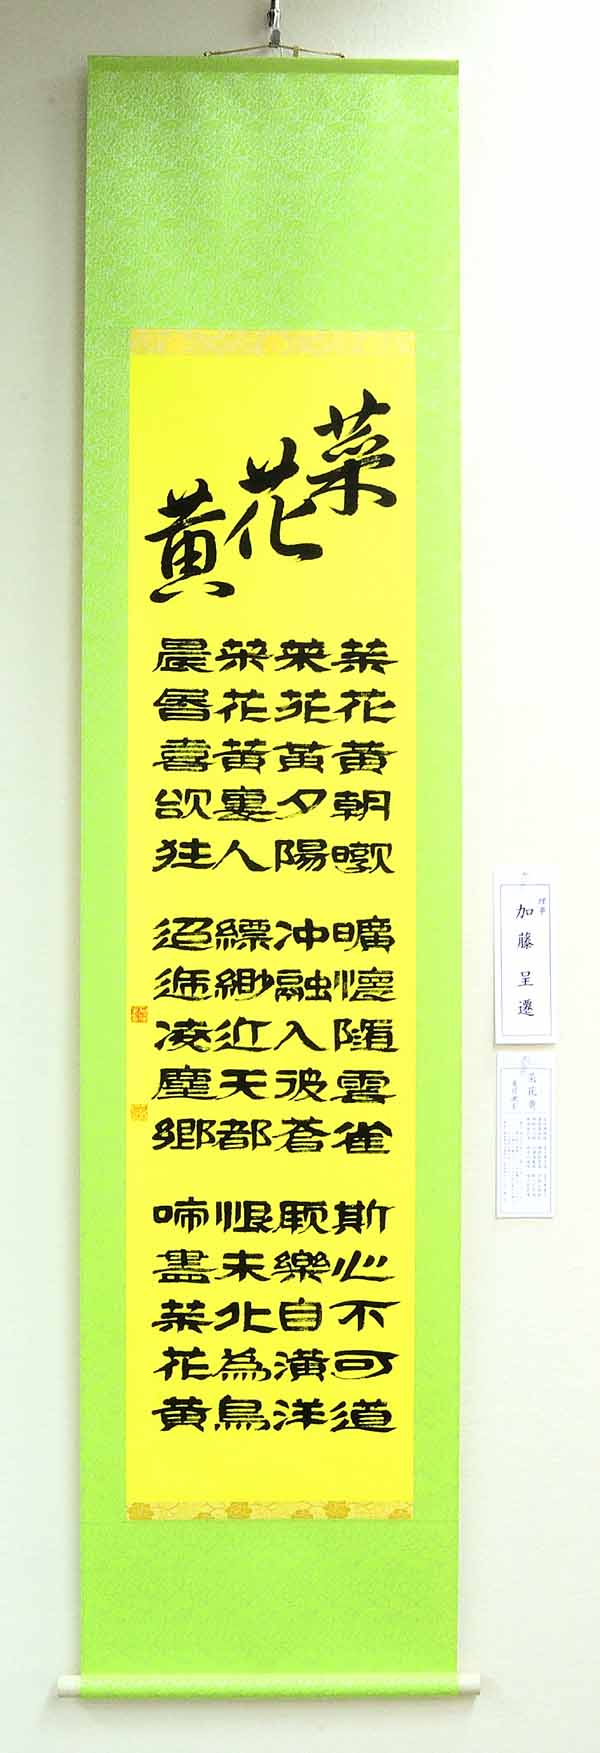 菜花黄
菜花黄朝暾
菜花黄夕陽
菜花黄裏人
晨昏喜欲狂
曠懷隨雲雀
冲融入彼蒼
縹緲近天都
迢遞凌塵郷
斯心不可道
厥樂自潢洋
恨未化為鳥
啼盡菜花黄
理事
加藤呈遷
菜花黄
夏目漱石